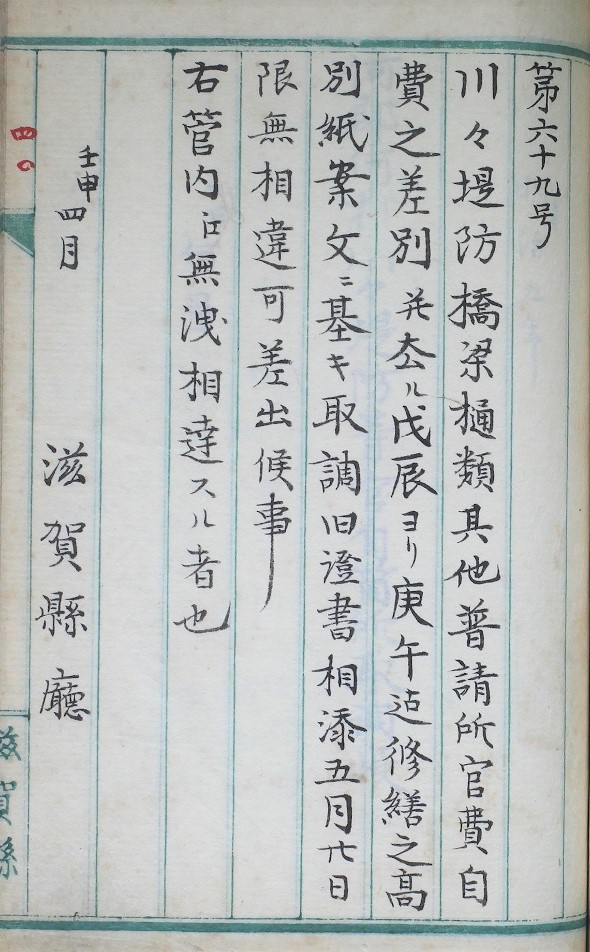 第六十九号
川々堤防橋梁樋類其他普請所官費自
費之差別并去ル戊辰ヨリ庚午迠修繕之高
別紙案文ニ基キ取調旧證書相添五月廿日
限無相違可差出候事
右管内江無洩相達スル者也
壬申四月
滋賀縣廳
四〇
滋賀縣